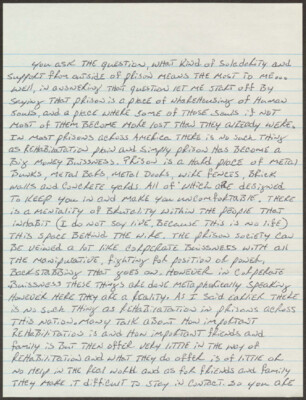 You ask the question, what kind of solodority and
support from outside of prison means the most to me...
well, in answering that question let me start off by
saying that prison is a place of wharehousing of human
souls, and a place where some of those souls if not
most of them become more lost than they already were.
In most prisons across America there is no such thing
as rehabilitation pen and simply prison has become a
Big Money Buissness. Prison is a hard place of metal
bunks, metal bars, metal doors, wire fences, brick
walls and concrete yards all of which are designed
to keep you in and make you uncomfortable. There
is a mentality of brutality within the people that
inhabit (I do not say live, because this is no life)
this space behind the wire. The prison society can
be viewed a lot like corperate buissness with all
the manipulating, fighting for position of power,
backstabbing that goes on. However in corperate
buissness these things are done metaphorically speaking
however here they are a reality. As I said earlier there
is no such thing as rehabilitation in prisons across
this nation. Many talk about how important
rehabilitation is and how important friends and
family is but then offer very little in the way of
rehabilitation and what they do offer is of little or
no help in the real world and as for friends and family
they make it difficult to stay in contact. So you are